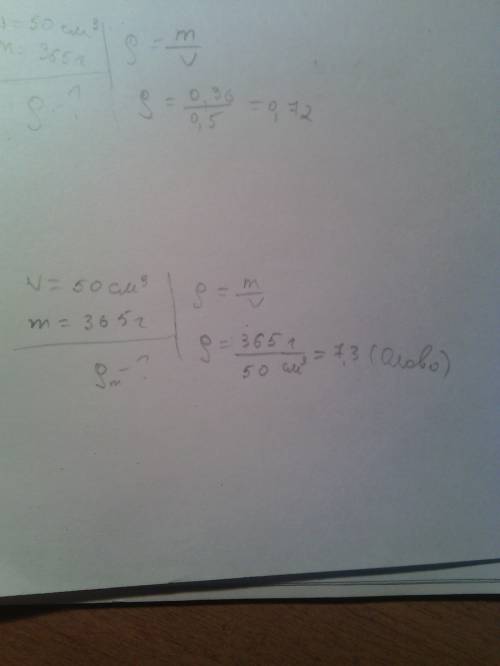 V = 50 см³
m = 365 г
ρ - ?
ρ = m/V
ρ = 0,36/0,5 = 0,72
V = 50 см³
m = 365 г
ρm - ?
ρ = m/V
ρ = 365 г/50 см³ = 7,3 (Олово)